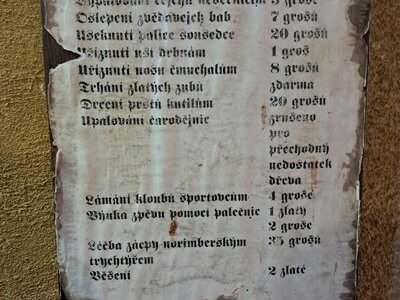 Vypalování cejchů nevěrnicím 5 groše
Oslepení zvědavejch bab 7 grošů
Useknutí palice sousedce 20 grošů
Uříznutí uší drbnám 1 groš
Uříznutí nosu čmuchalům 8 grošů
Trhání zlatých zubů zdarma
Drcení prstů kutilům 20 grošů
Upalování čarodějnic zrušeno
pro
přechodný
nedostatek
dřeva
Lámání kloubů sportovcům 4 groše
Výuka zpěvu pomocí palečnic 1 zlatý
2 groše
Léčba zácpy norimberským 35 grošů
trychtýřem
Věšení 2 zlaté